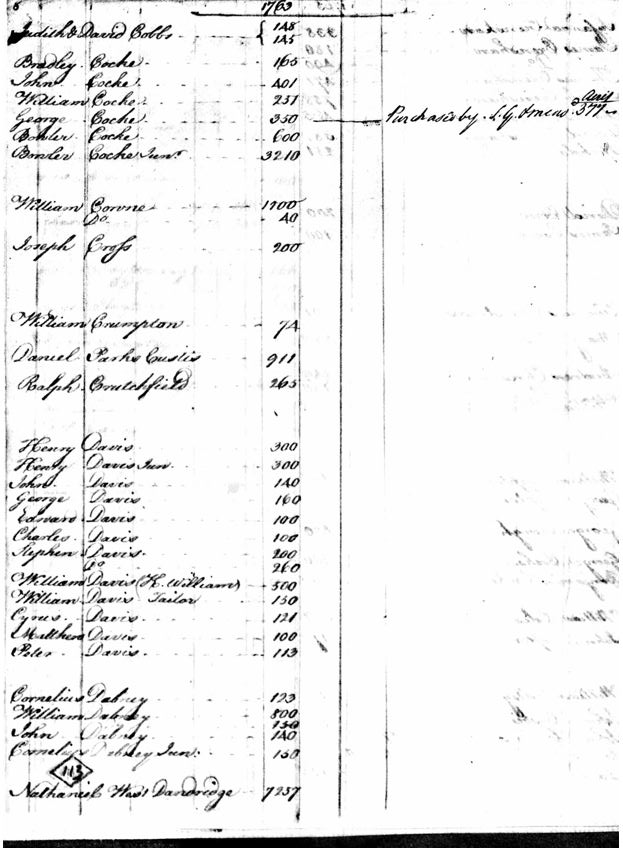 1763
Judith & David Cobbs { 148
145
Bradley Cocke 165
John Cocke 401
William Cocke 251
George Cocke 350 Purchased by 377
Bowler Cocke 600
Bowler Cocke Junr. 3210
William Cowne 1200
Do. 40
Joseph Cross 200
William Crumpton 74
Daniel Parks Custis 911
Ralph Crutchfield 265
Henry Davis 300
Henry Davis Jun. 300
John Davis 140
George Davis 160
Edward Davis 100
Charles Davis 100
Stephen Davis 200
Do 260
William Davis (K. William) 500
William Davis Tailor 150
Cyrus Davis 121
Matthew Davis 100
Peter Davis 113
Cornelius Dabney 123
William Dabney 800
150
John Dabney 140
Cornelius Dabney Jun: 150
113
Nathaniel West Dandridge 7257